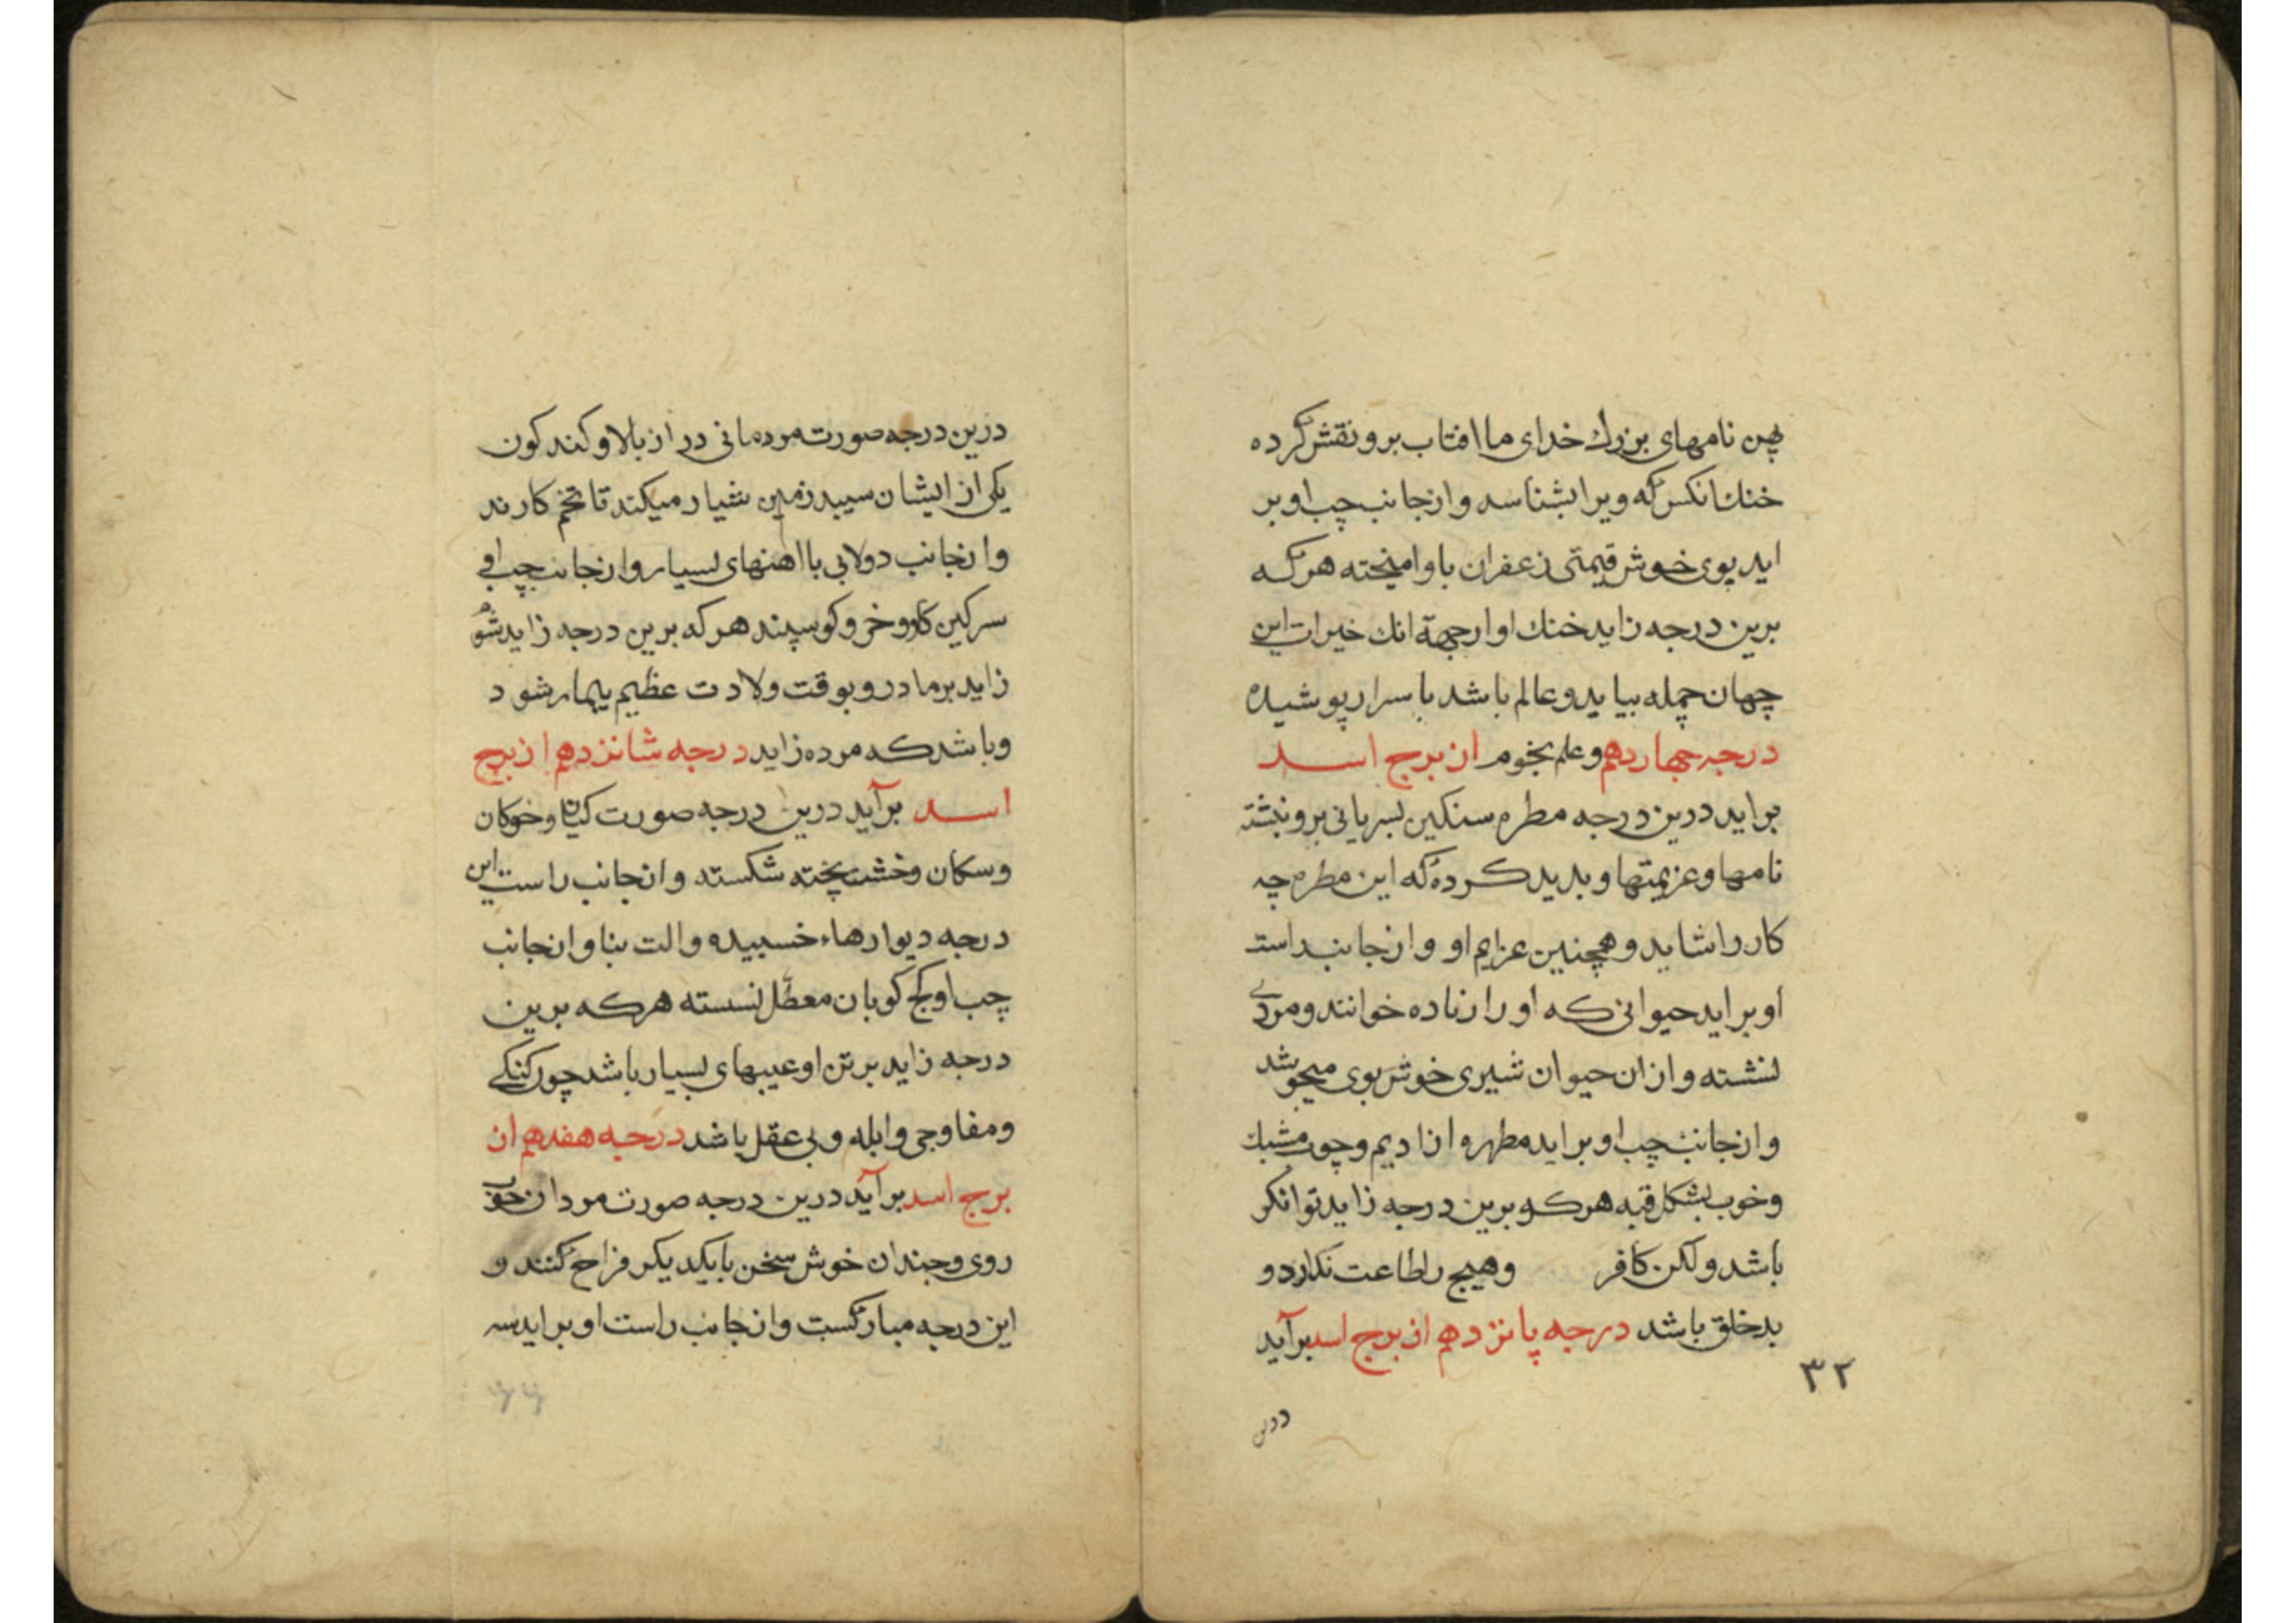 پهن نامهای بزرك خدای ما افتاب برو نقش کرده
خنك انکس که ویرا بشناسد و از جانب چپ او بر
اید بوی خوش قیمتی زعفران با و امیخته هر که
برین درجه زاید خنك او ارجهة انك خیرات این
جهان جمله بیابد و عالم باشد با سرار پوشیده
درجه جهاردهم و علم نجوم از برج اسد
براید درین درجه مطره سنکین بسریانی برو نبشته
نامها و عزیمتها و بدید کرده که این مطره چه
کار را شاید و همچنین عزایم او و از جانب راست
او براید حیوانی که او را زناده خوانند و مردی
نشسته و از ان حیوان شیری خوش بوی میجوشد
و از جانب چپ او براید مطهره از ادیم و چوب مشبك
و خوب بشکل قبه هر کو برین درجه زاید توانکر
باشد و لکن کافر وهیج را طاعت ندارد و
بدخلق باشد درجه پانزدهم از برج اسد برآید
۳۲
درین
درین درجه صورت مردمانی دراز بالا و کندکون
یکی از ایشان سپید زمین شیار میکند تا تخم کارند
و از جانب دولابی با اهنهای بسیار و از جانب چپ او
سرکین کاو و خر و کوسپند هر که برین درجه زاید شوم
زاید بر مادر و بوقت ولادت عظیم بیمار شود
و باشد که مرده زاید درجه شانزدهم از برج
اسد برآید درین درجه صورت کپیان و خوکان
و سکان و خشت پخته شکسته و از جانب راست این
درجه دیوارهاء خسبیده و الت بنا و از جانب
چپ او کج کوبان معطل نشسته هر که برین
درجه زاید بر تن او عیبهای بسیار باشد چون کنکی
و مفلوجی و ابله و بی عقل باشد درجه هفدهم از
برج اسد برآید درین درجه صورت مردان خوب
روی و چندان خوش سخن با یکدیکر مزاح کنند و
این درجه مبارکست و از جانب راست او براید سه